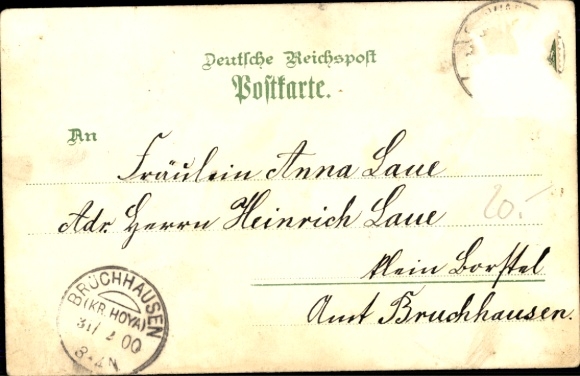 Deutsche Reichspost
Postkarte.
An
Fräulein Anna Laue
Adr. Herrn Heinrich Laue
20.-
klein Borstel
Amt Bruchhausen.
BRUCHHAUSEN
(KR. HOYA)
00
8-9 N